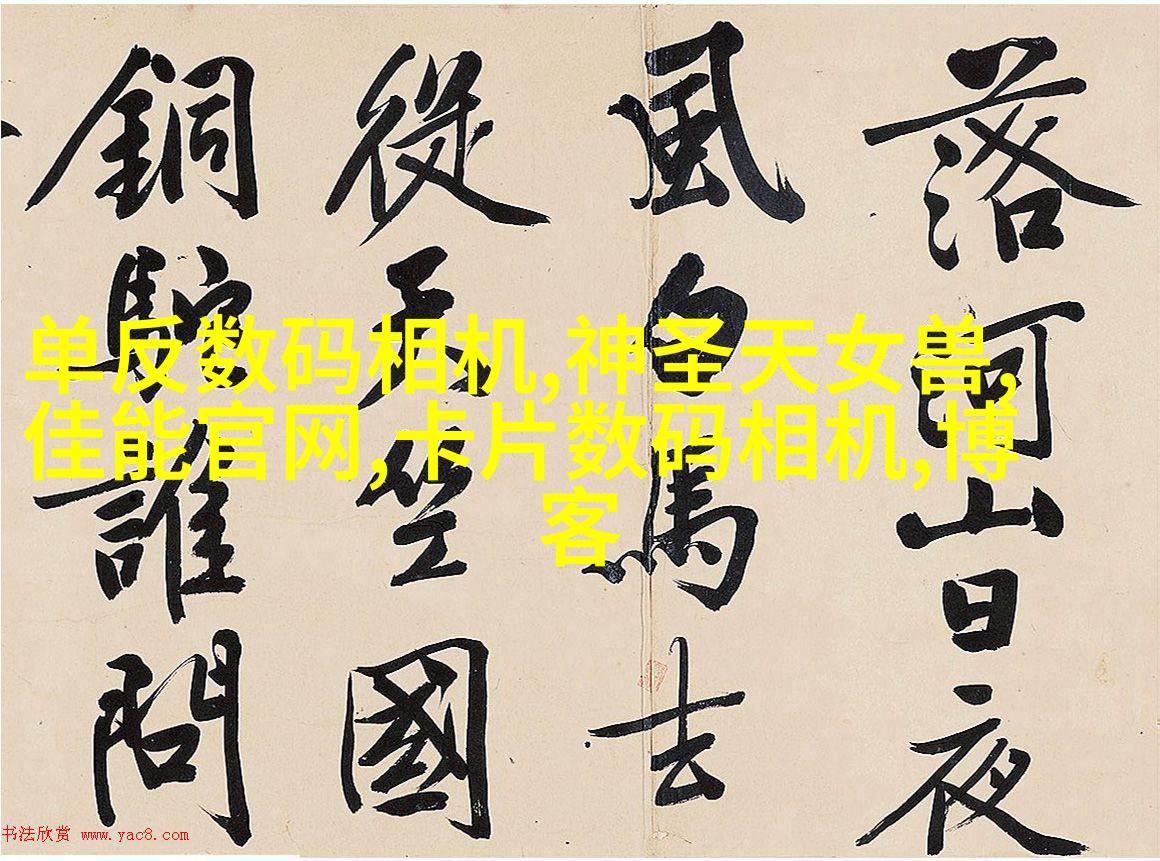 落河山日夜
風白馬去
從天竺國
銅駝誰問
单反数码相机,神圣天女兽,
佳能官网,卡片数码相机,博
客
书法欣赏 www.yac8.com